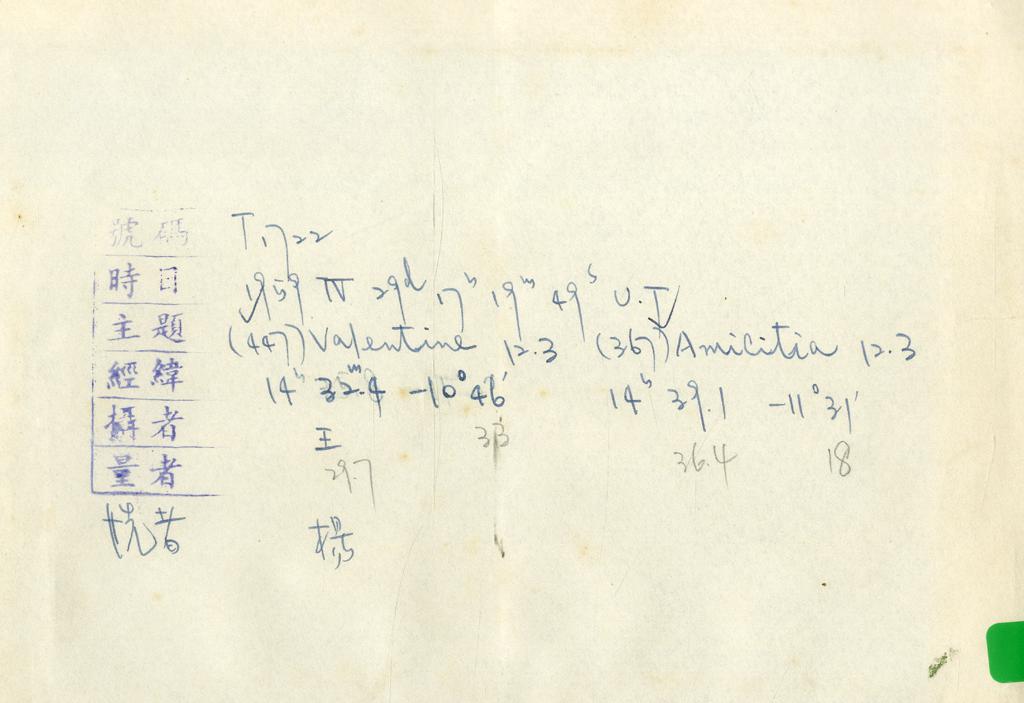 號碼 T1722
時日 1959 IV 29d 17h 19m 49s U.T
主題 (447) Valentine 12.3 (367) Amicitia 12.3
經緯 14h 32m.4 -10° 46' 14h 39.1 -11° 31'
攝者 王 33
量者 29.7 36.4 18
者 楊